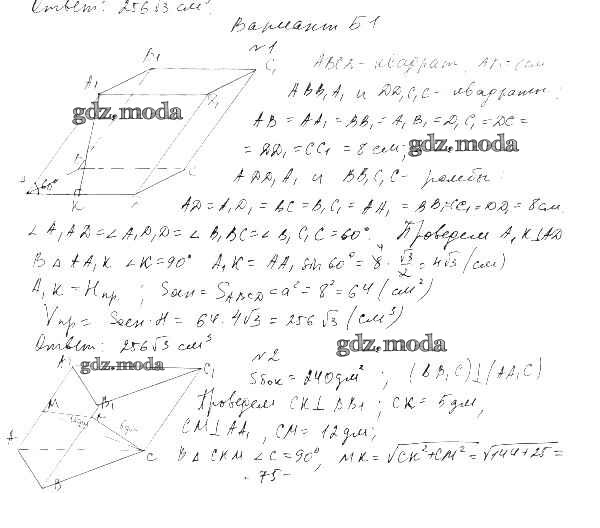 Ответ: 256√3 см³.
Вариант Б1
№1
ABCD - квадрат, AB = 8 см
ABB₁A₁ и DD₁C₁C - квадраты:
AB = AA₁ = BB₁ = A₁B₁ = D₁C₁ = DC =
= DD₁ = CC₁ = 8 см;
ADD₁A₁ и BB₁C₁C - ромбы:
AD = A₁D₁ = BC = B₁C₁ = AA₁ = BB₁ = CC₁ = DD₁ = 8 см.
∠A₁AD = ∠A₁D₁D = ∠B₁BC = ∠B₁C₁C = 60°. Проведем A₁K⊥AD
В △AA₁K ∠K = 90° A₁K = AA₁ sin 60° = 8 · √3/2 = 4√3 (см)
A₁K = Hпр ; Sосн = S ABCD = a² = 8² = 64 (см²)
Vпр = Sосн · H = 64 · 4√3 = 256√3 (см³)
Ответ: 256√3 см³
№2
Sбок = 240 дм² ; (BB₁C)⊥(AA₁C)
Проведем CK⊥BB₁ ; CK = 5 дм,
CM⊥AA₁, CM = 12 дм;
В △CKM ∠C = 90°, MK = √CK² + CM² = √144 + 25 =
- 75 -
B₁
C₁
A₁
60°
K
C
A₁
C₁
B₁
M
K
5дм
A
C
B
gdz.moda
gdz.moda
gdz.moda
gdz.moda